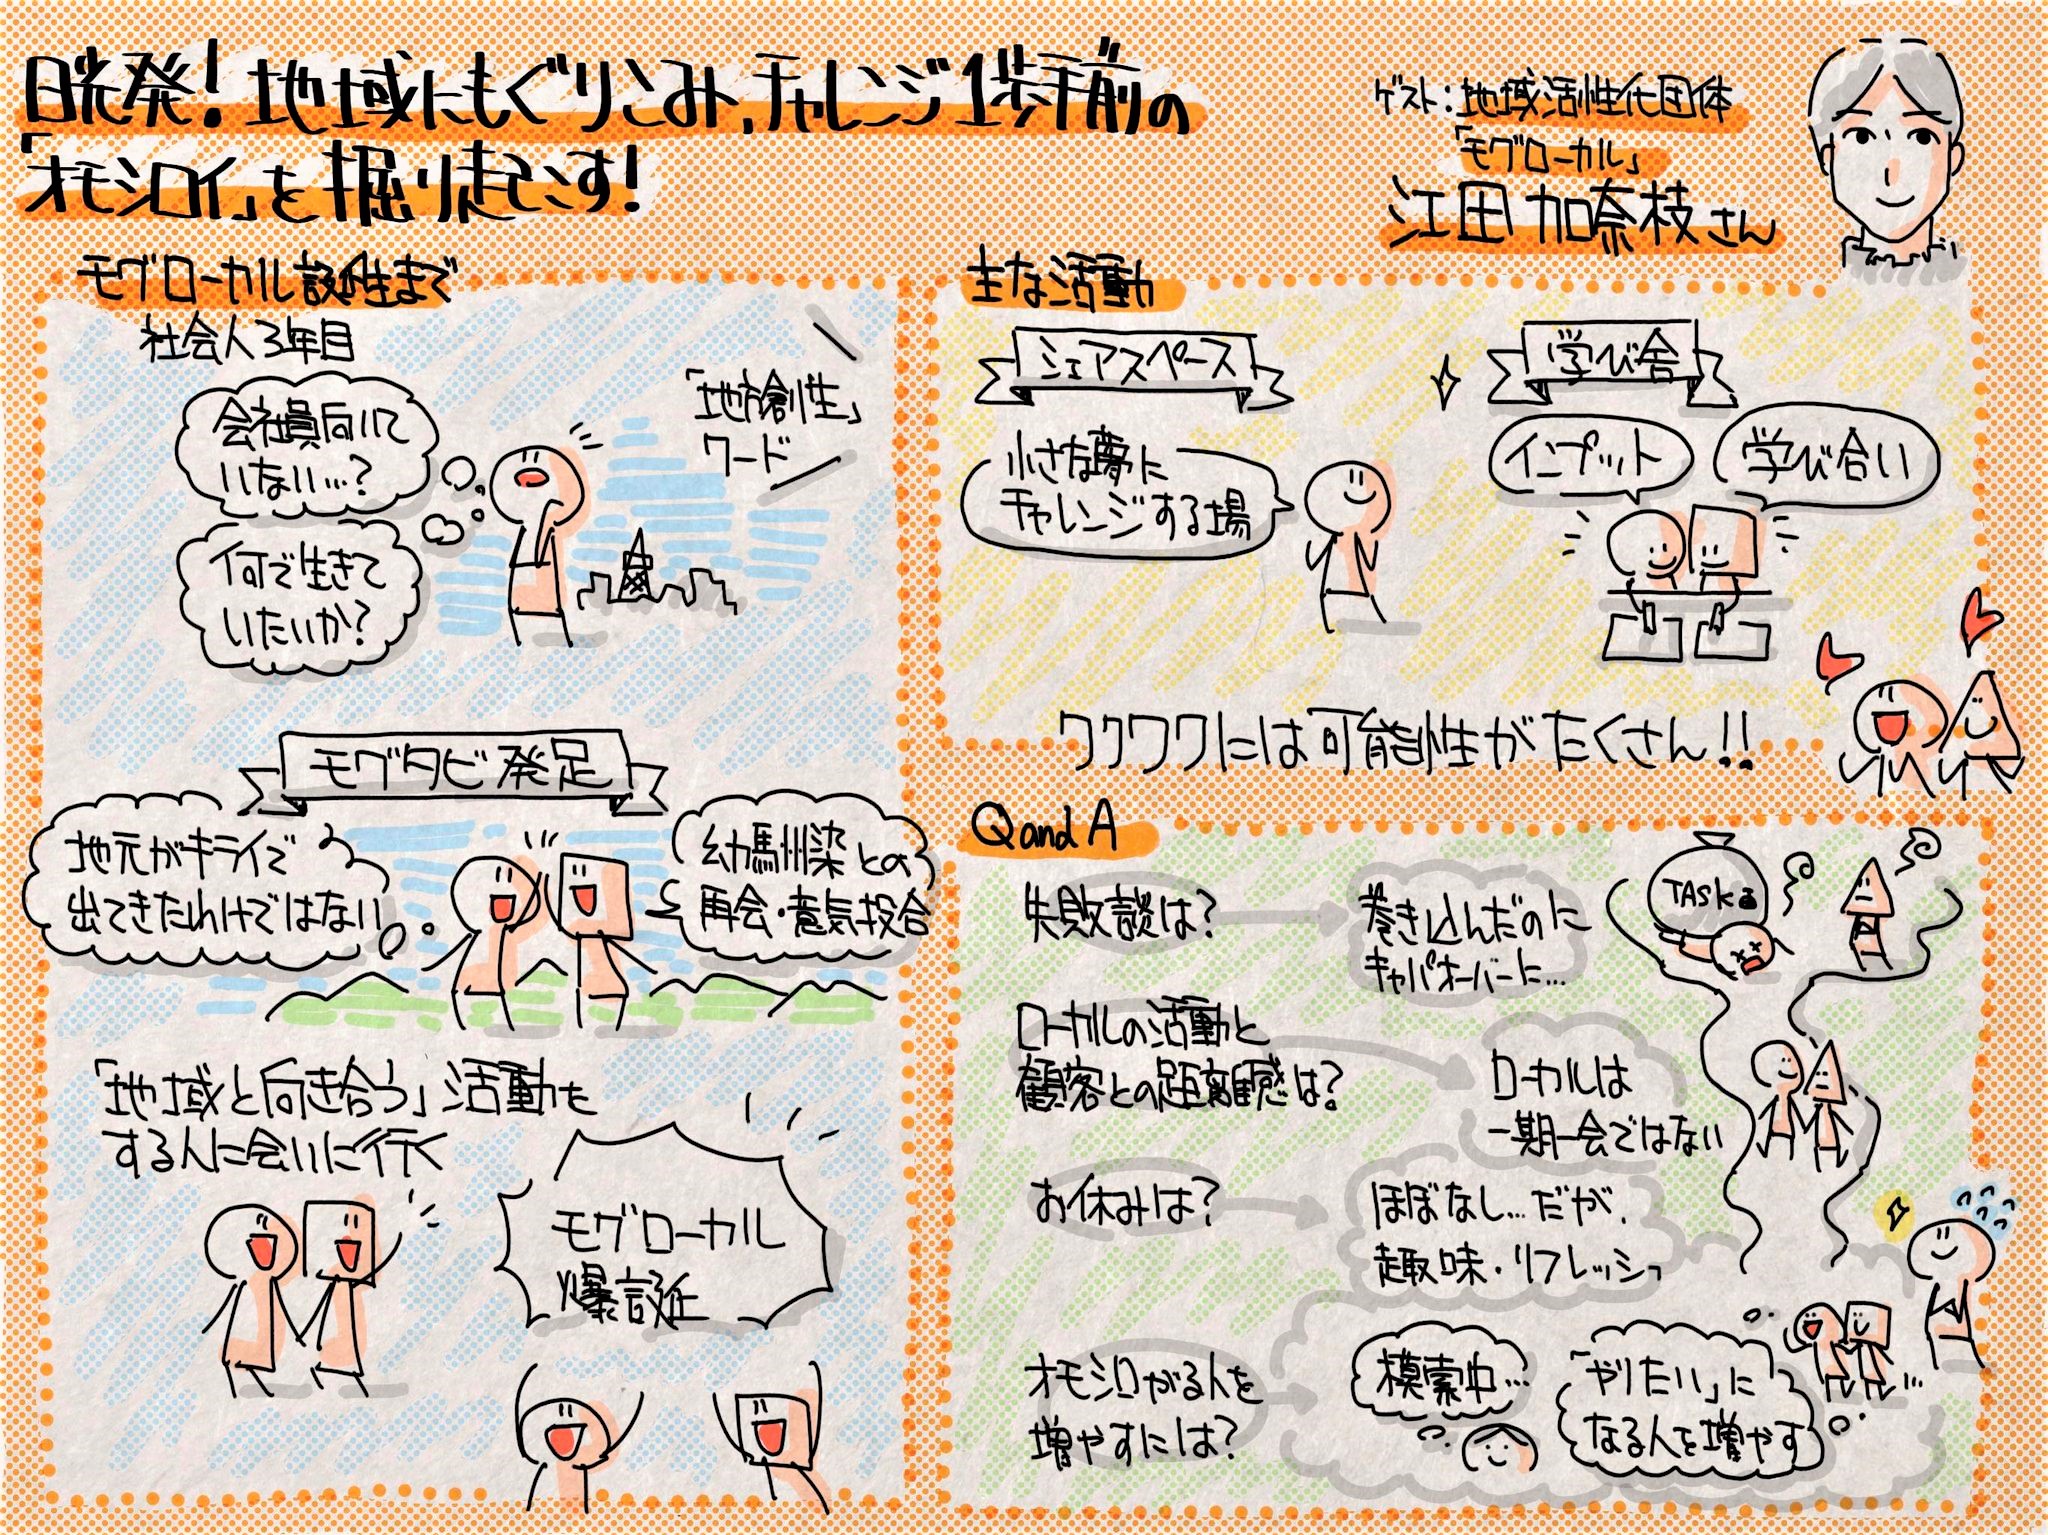 日光発！地域にもぐりこみ、チャレンジ1歩手前の
「オモシロイ」を掘り起こす！
ゲスト：地域活性化団体
「モグローカル」
江田加奈枝さん
モグローカル誕生まで
社会人3年目
会社員向いて
いない…？
何で生きて
いたいか？
「地方創性」
ワード
モグタビ発足
地元がキライで
出てきたわけではない
幼馴染との
再会・意気投合
「地域と向き合う」活動を
する人に会いに行く
モグローカル
爆誕
主な活動
シェアスペース
小さな夢に
チャレンジする場
学び舎
インプット
学び合い
ワクワクには可能性がたくさん！！
Q and A
失敗談は？
巻き込んだのに
キャパオーバーに…
TASK
ローカルの活動と
顧客との距離感は？
ローカルは
一期一会ではない
お休みは？
ほぼなし…だが、
趣味・リフレッシュ
オモシロがる人を
増やすには？
模索中…
「やりたい」に
なる人を増やす